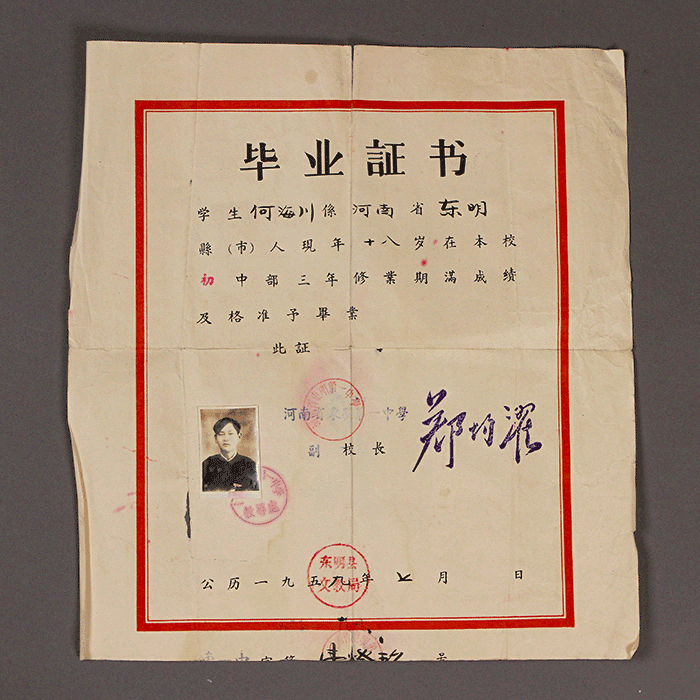 毕业証书
学生何海川係河南省东明
縣(市)人現年十八岁在本校
初中部三年修業期滿成績
及格准予畢業
此証
河南省东明第一中學
副校长 郑均濯
东明县
文教局
公历一九五九年七月 日